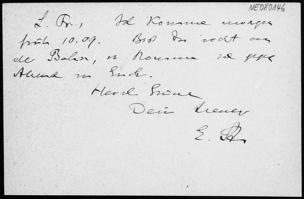 NE080146
L. Fr., Ich komme morgen
früh 10.09. Bist Du nicht an
der Bahn, so komme ich gegen
Abend zu Euch.
Herzl. Grüße
Dein
E.